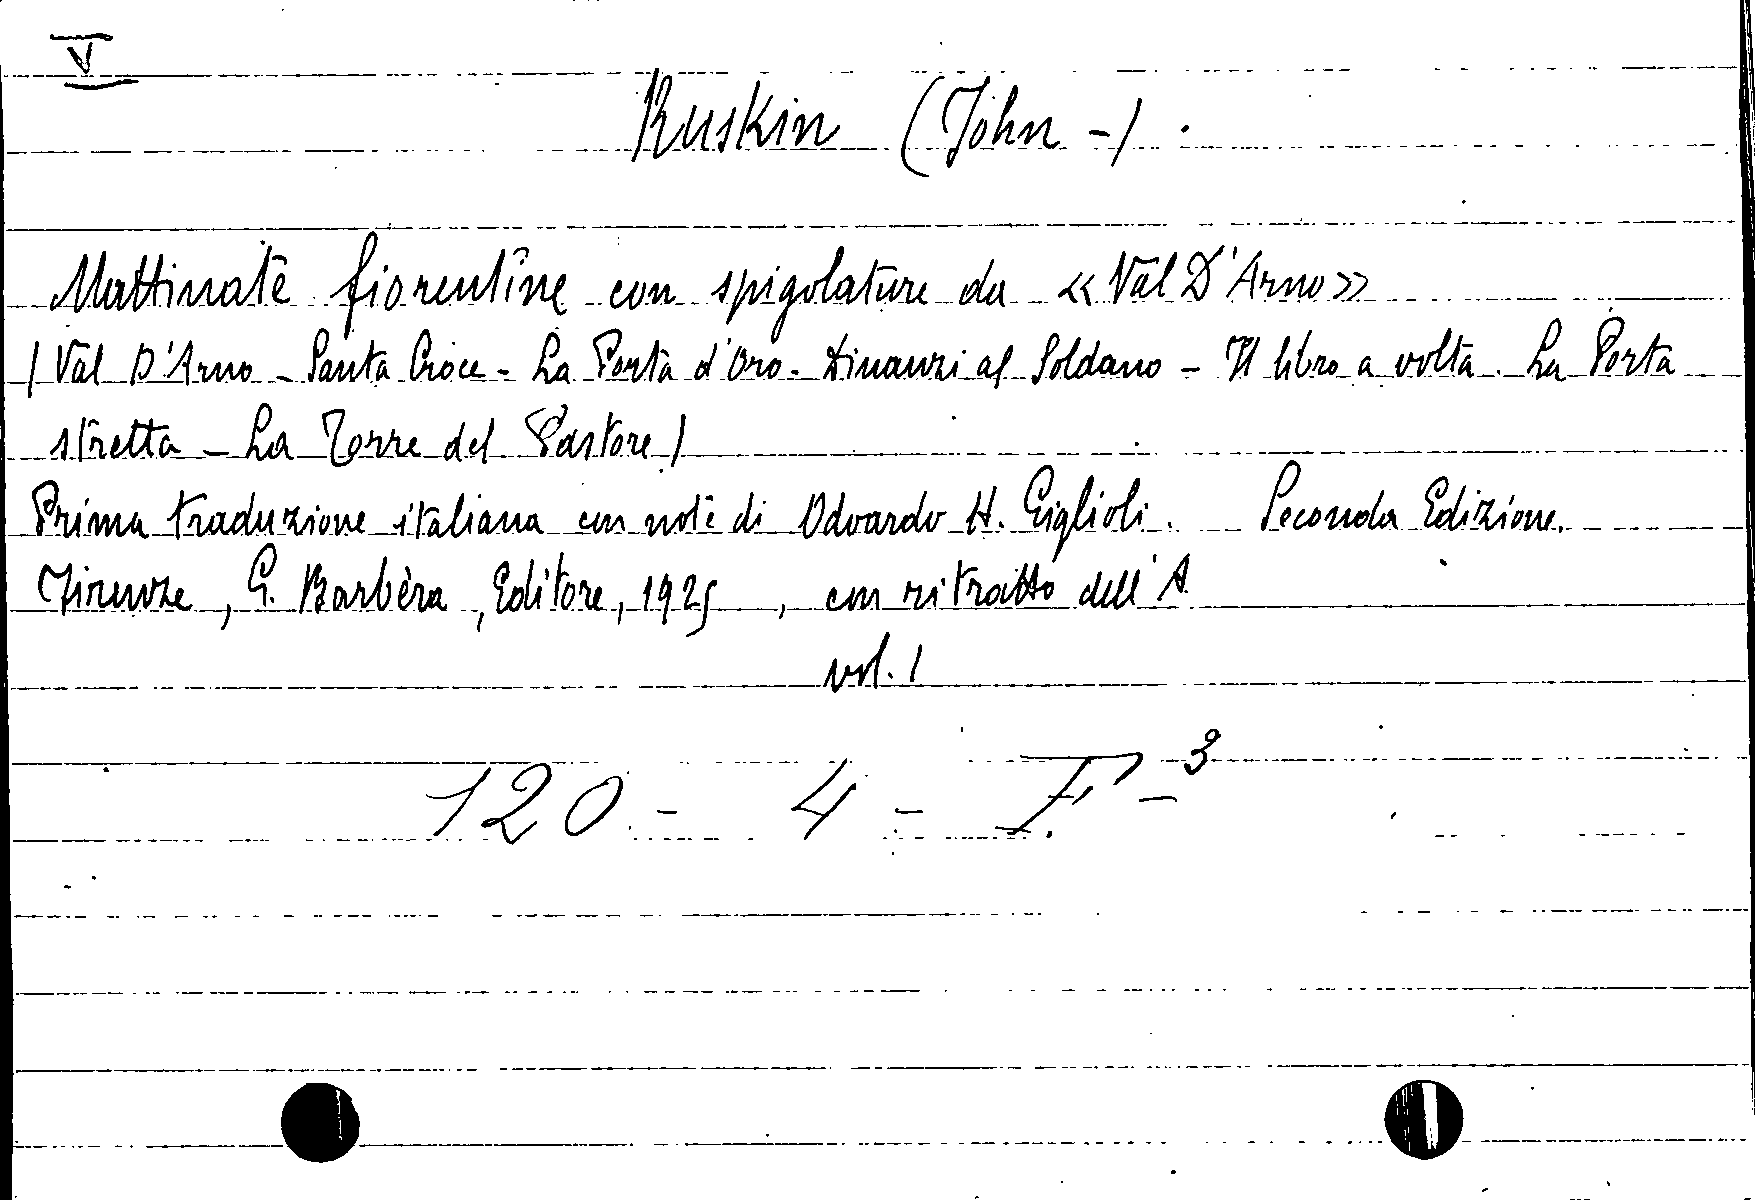 V
Ruskin (John -).
Mattinate fiorentine con spigolature da «Val D'Arno»
(Val D'Arno - Santa Croce - La Porta d'Oro - Dinanzi al Soldano - Il libro a volta. La Porta
stretta - La Torre del Pastore)
Prima traduzione italiana con note di Odoardo H. Giglioli. Seconda Edizione.
Firenze, G. Barbèra, Editore, 1925, con ritratto dell'A
vol. 1
120 - 4 - F - 3